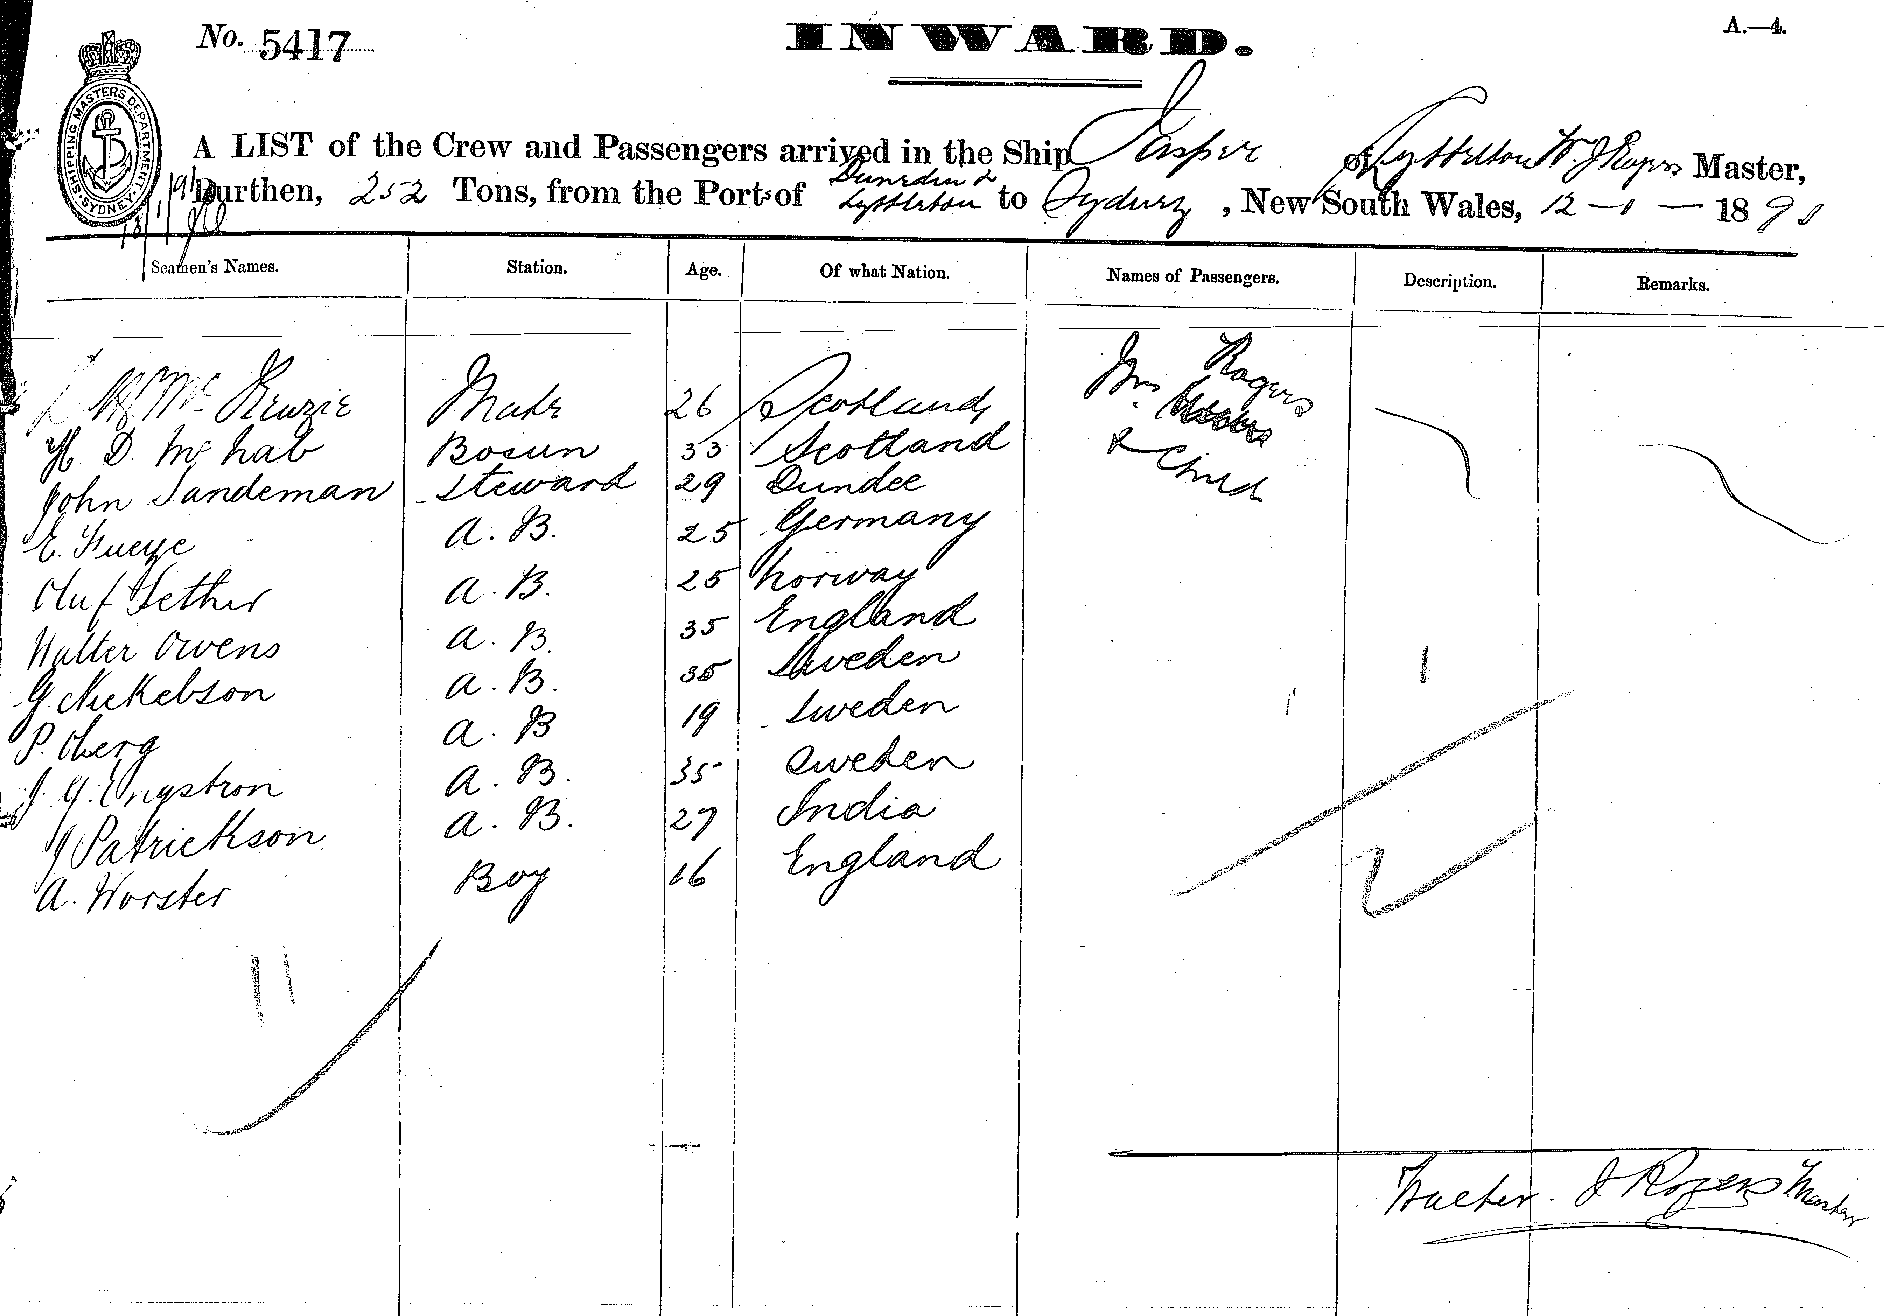 No. 5417
INWARD.
A.—4.
SHIPPING MASTERS DEPARTMENT
SYDNEY
A LIST of the Crew and Passengers arrived in the Ship Jasper of Lyttelton W. J Rogers Master,
Burthen, 252 Tons, from the Ports of Dunedin & Lyttleton to Sydney, New South Wales, 12-1-1891
Seamen's Names. Station. Age. Of what Nation. Names of Passengers. Description. Remarks.
McKenzie Mate 26 Scotland Mrs Rogers
H. D. McNab Bosun 33 Scotland & Child
John Sandeman Steward 29 Dundee
E. A. B. 25 Germany
Oluf Sether A. B. 25 Norway
Walter Owens A. B. 35 England
G. Nickelson A. B. 35 Sweden
P. Oberg A. B 19 Sweden
J. G. Engstron A. B. 35 Sweden
J Patrickson A. B. 27 India
A. Worster Boy 16 England
1
2
11
Walter J Rogers Master